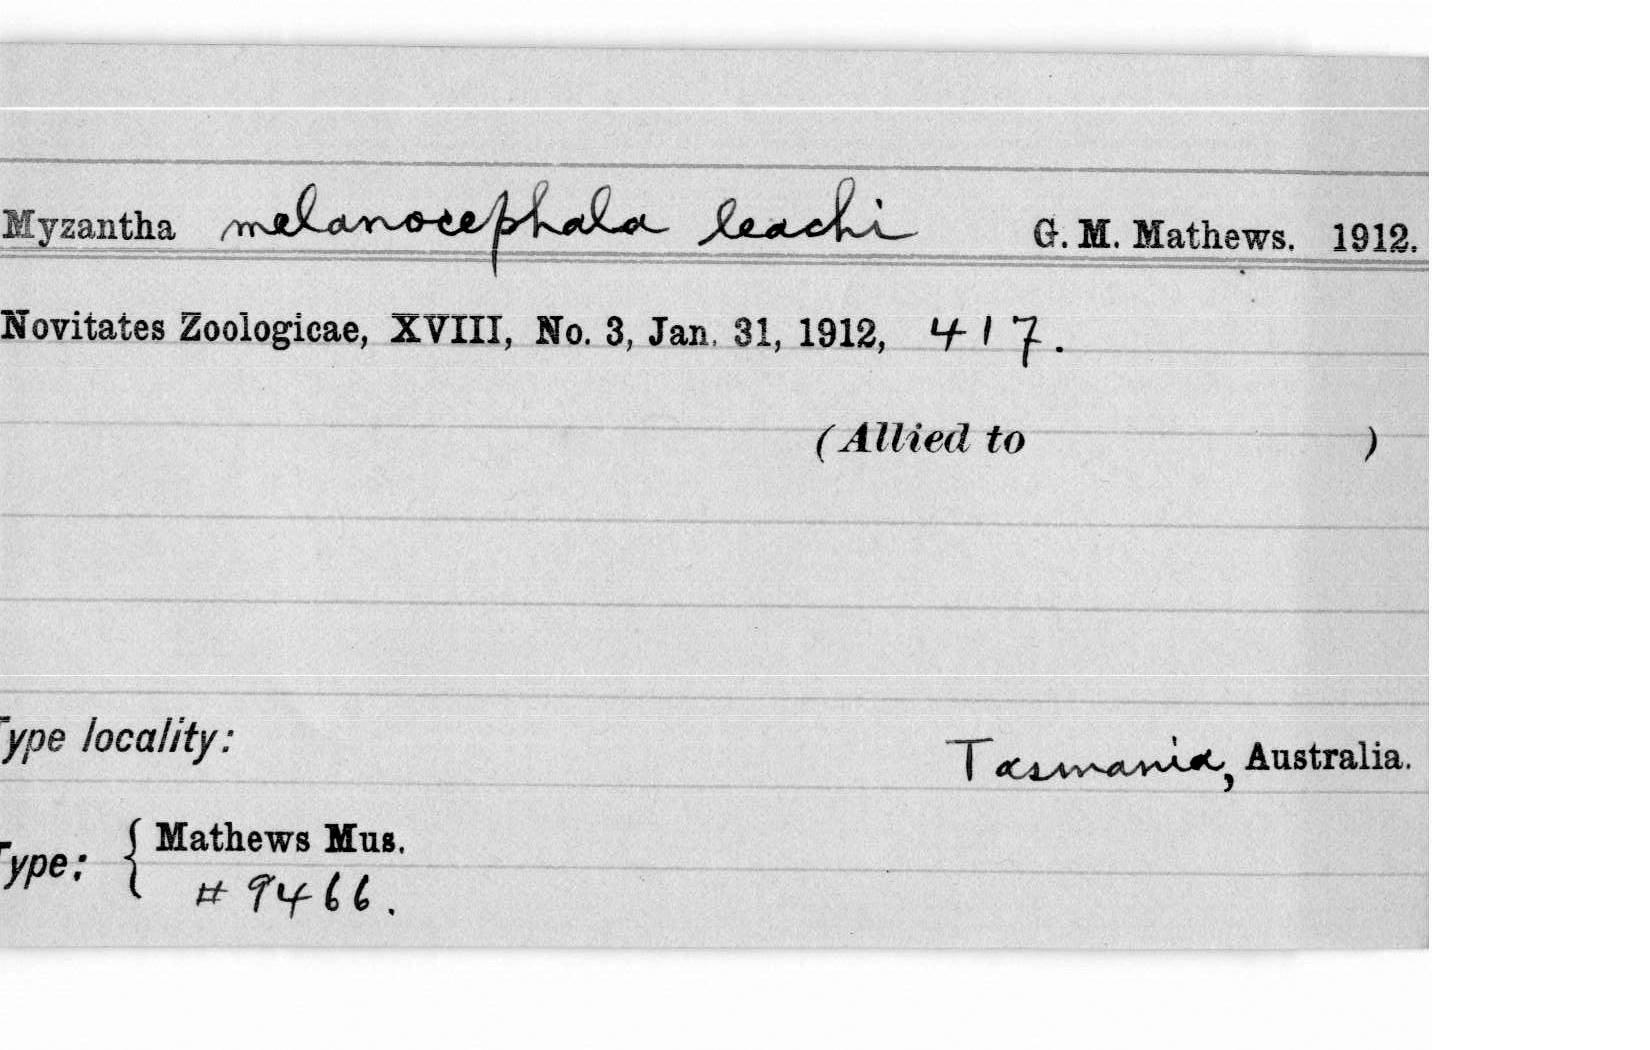 Myzantha melanocephala leachi G. M. Mathews. 1912.
Novitates Zoologicae, XVIII, No. 3, Jan. 31, 1912, 417.
(Allied to )
Type locality:
Tasmania, Australia.
Type: { Mathews Mus.
# 9466.